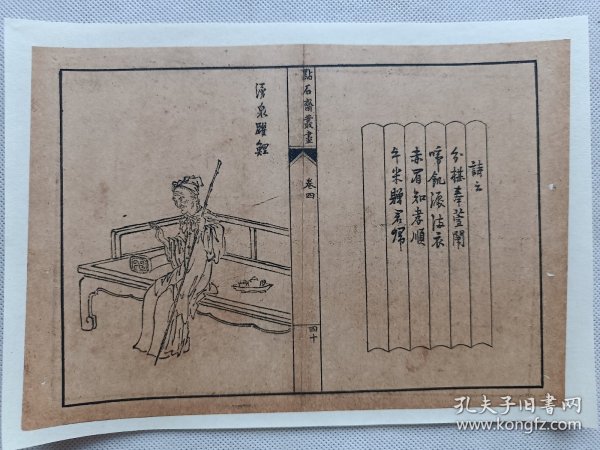 詩云
分椹奉萱闈
啼飢淚滿衣
赤眉知孝順
牛米贈君歸
點石齋叢畫
卷四
四十
湧泉躍鯉
孔夫子旧书网
www.kongfz.com